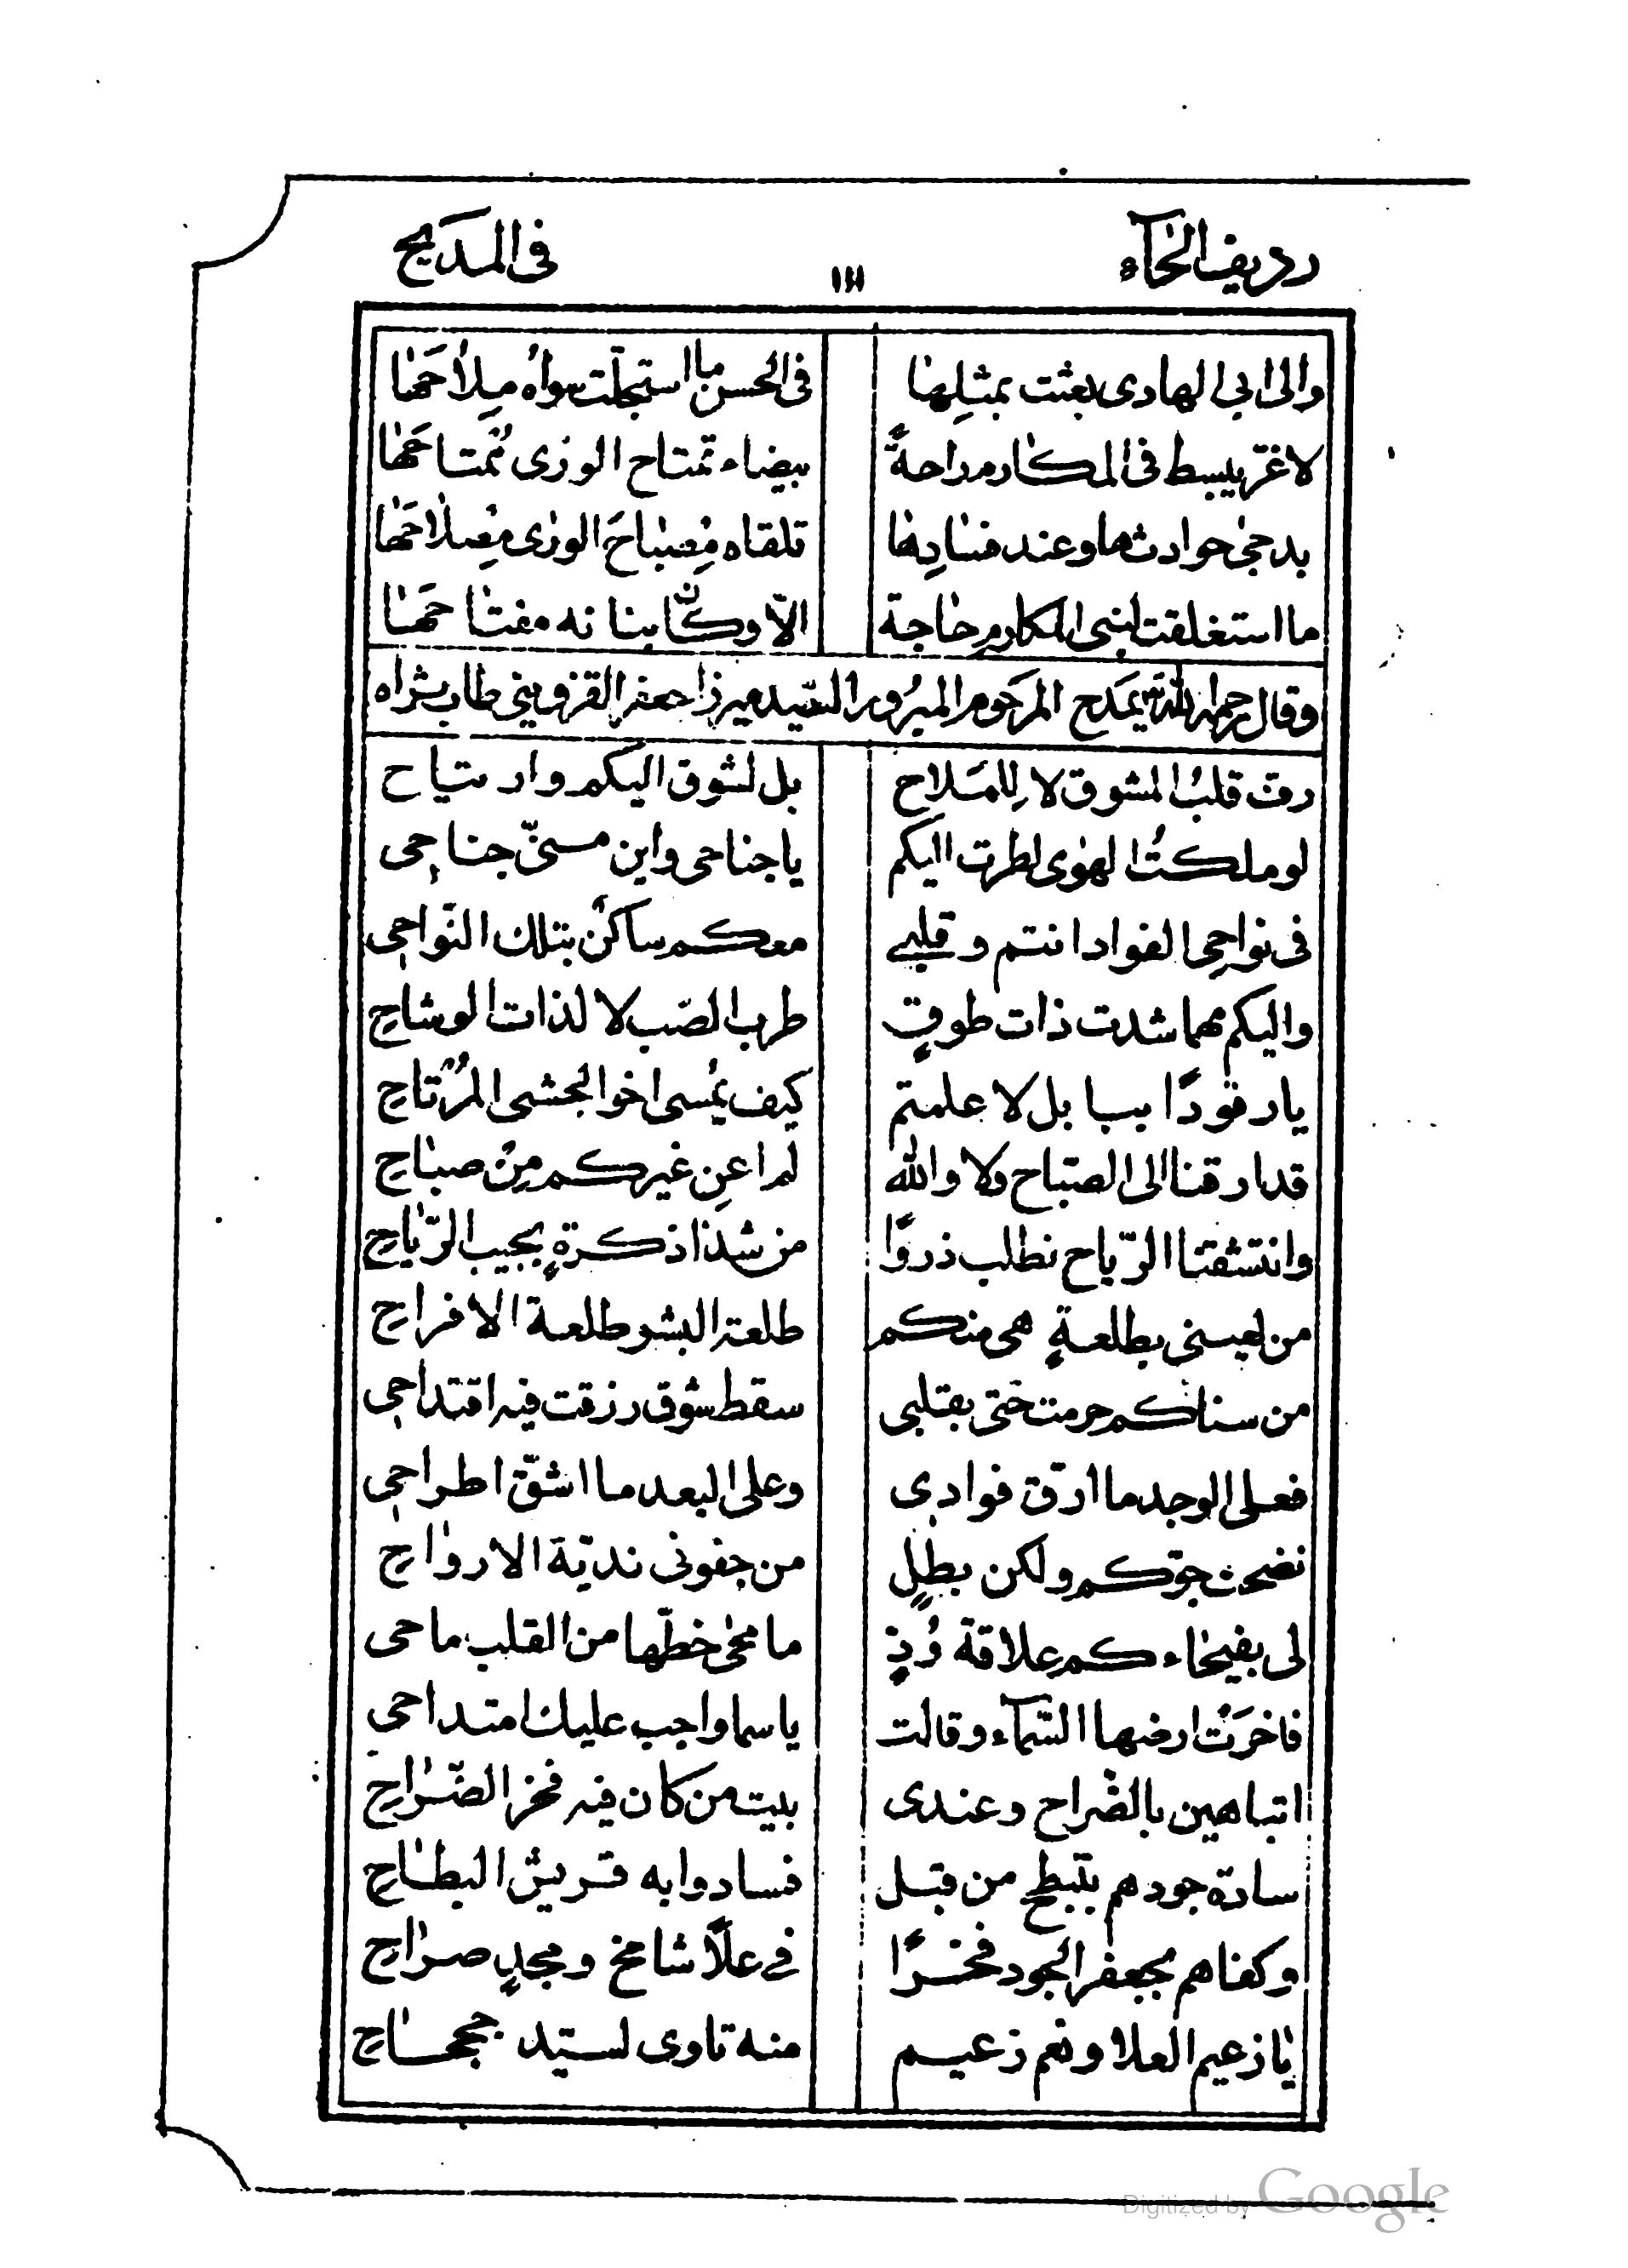 رديف الحاء ١١١ في المديح
والى ابي الهادى بعثت بمثلها في الحسن ما استجلت سواه ملاحها
لاغرّ يبسط في المكارم راحةً بيضاء تمتاح الورى ممتاحها
بدجى حوادثها وعند فسادها تلقاه مصباح الورى مصلاحها
ما استغلقت لبنى المكارم حاجة الّا وكانّ بنانه مفتاحها
وقال رحمه الله يمدح المرحوم المبرور السيد ميرزا جعفر القزويني طاب ثراه
رقّ قلب المشوق لا للملاح بل لشوق اليكم وارتياح
لو ملكت الهوى لطرت اليكم يا جناحى واين منّى جناحي
فى نواحى الفواد انتم وقلبي معكم ساكن بتلك النّواحي
واليكم مهما شدت ذات طوقٍ طرب الصّب لا لذات الوشاح
يا رقودًا ببابل لا علمتم كيف يمسى اخو الحشى المرتاح
قد ارقنا الى الصّباح ولا والله لم اعن غيركم من صباح
وانتشقنا الرّياح نطلب ذروًا من شذا ذكرةٍ بجيب الرّياح
من لعينى بطلعةٍ هى منكم طلعة البشر طلعة الافراح
من سناكم حرمت حتى بقلبى سقط شوق رزقت فيه اقتداحي
فعلى الوجد ما ارقّ فوادى وعلى البعد ما اشقّ اطراحي
نضحت جوّكم ولكن بطلٍ من جفونى نديّة الارواح
لى بفيحاء كم علاقة ودٍّ ما محى خطّها من القلب ماحى
فاخرت ارضها السّماء وقالت يا سما واجب عليك امتداحى
اتباهين بالضّراح وعندى بيت من كان فيه فخر الضّراح
سادة جودهم بتبطح من قبل فسادوا به قريش البطاح
وكفاهم بجعفر الجود فخرًا في علًا شامخ ومجدٍ صراح
يا زعيم العلا ونعم زعيم منه تاوى لسيّد جحجاح
Digitized by Google